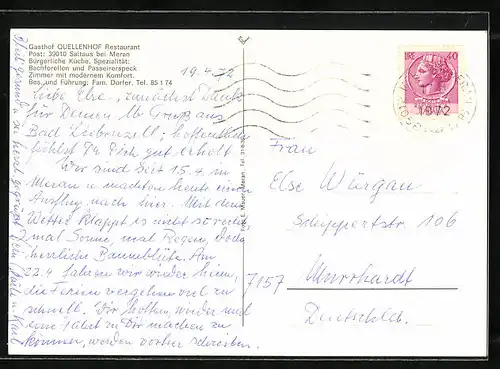 Gasthof QUELLENHOF Restaurant
Post: 39010 Saltaus bei Meran
Bürgerliche Küche, Spezialität:
Bachforellen und Passeirerspeck
Zimmer mit modernem Komfort.
Bes. und Führung: Fam. Dorfer, Tel. 85 1 74
19.4.72
Liebe Else, zunächst Dank
für Deinen lb Gruß aus
Bad Liebenzell; hoffentlich
fühlst Du Dich gut erholt
Wir sind seit 15.4. in
Meran u machten heute einen
Ausflug nach hier. Mit dem
Wetter klappt es nicht so recht
mal Sonne, mal Regen, doch
herrliche Baumblüte. Am
22.4 fahren wir wieder heim,
die Ferien vergehen viel zu
schnell. Wir hoffen, wieder mal
eine Fahrt zu Dir machen zu
können, werden vorher schreiben.
sei herzl gegrüßt
Foto E. Meran
LIRE 40
1972
Frau
Else Würgau
Schippertstr 106
7157 Murrhardt
Deutschld.